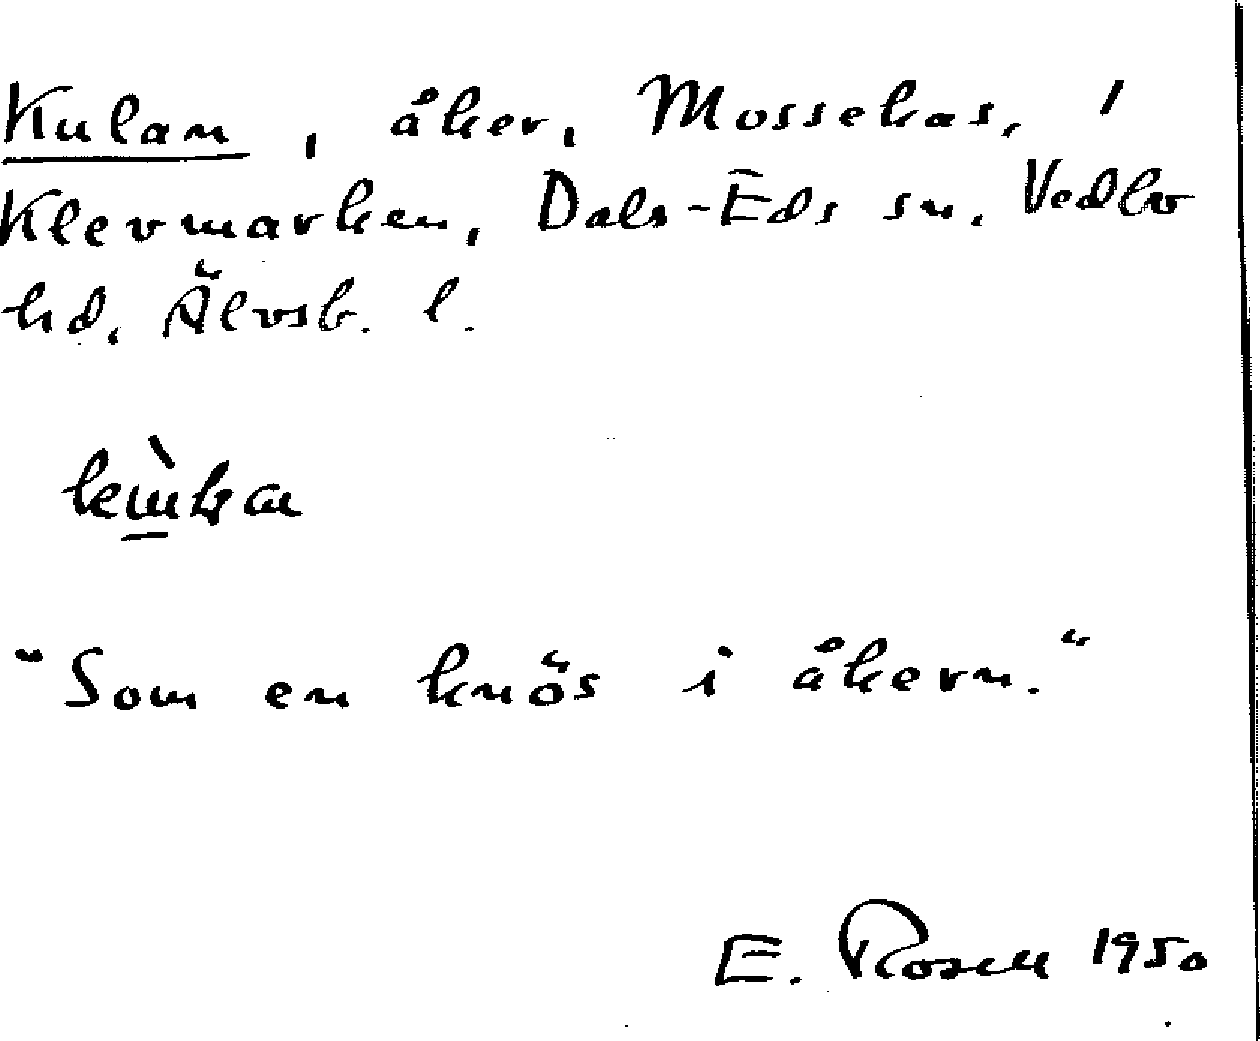 Kulan, åker, Mossekas, /
Klevmarken, Dals-Eds sn. Vedbo
hd. Älvsb. l.
"Som en knös i åkern."
E. Rosell 1950